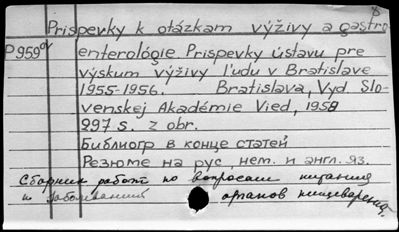 8
Prispevky k otázkam výživy a gastro
P959 enterológie. Prispevky ústavu pre
výskum výživy ľudu v Bratislave
1955-1956. Bratislava, Vyd Slo-
venskej Akadémie Vied, 1958
297 s. z obr.
Библиогр в конце статей
Резюме на рус, нем. и англ. яз.
Сборник работ по вопросам питания
и заболеваний органов пищеварения.